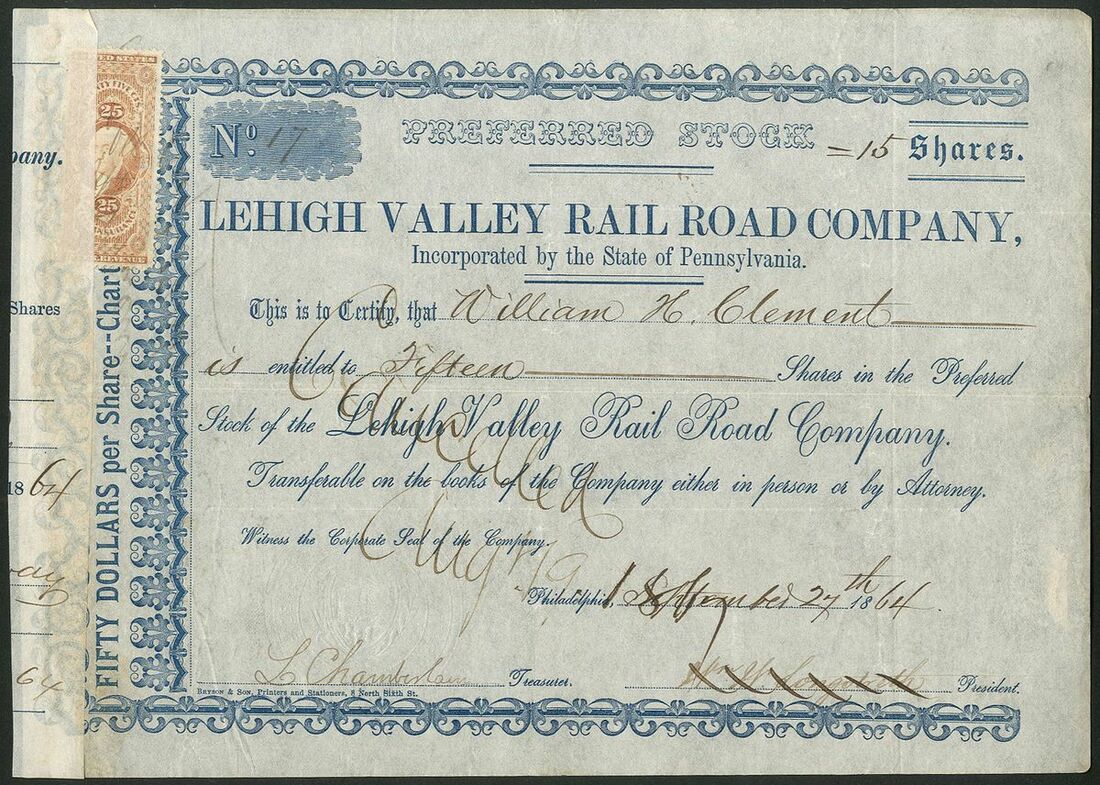 No. 17
PREFERRED STOCK
=15 Shares.
LEHIGH VALLEY RAIL ROAD COMPANY,
Incorporated by the State of Pennsylvania.
This is to Certify, that William H. Clement
is entitled to Fifteen Shares in the Preferred
Stock of the Lehigh Valley Rail Road Company.
Transferable on the books of the Company either in person or by Attorney.
Witness the Corporate Seal of the Company.
Philadelphia, September 27th 1864.
L Chamberlain Treasurer.
President.
BRYSON & SON, Printers and Stationers, 8 North Sixth St.
Cancelled
Aug
FIFTY DOLLARS per Share--Chart
25
25
pany.
Shares
1864
64